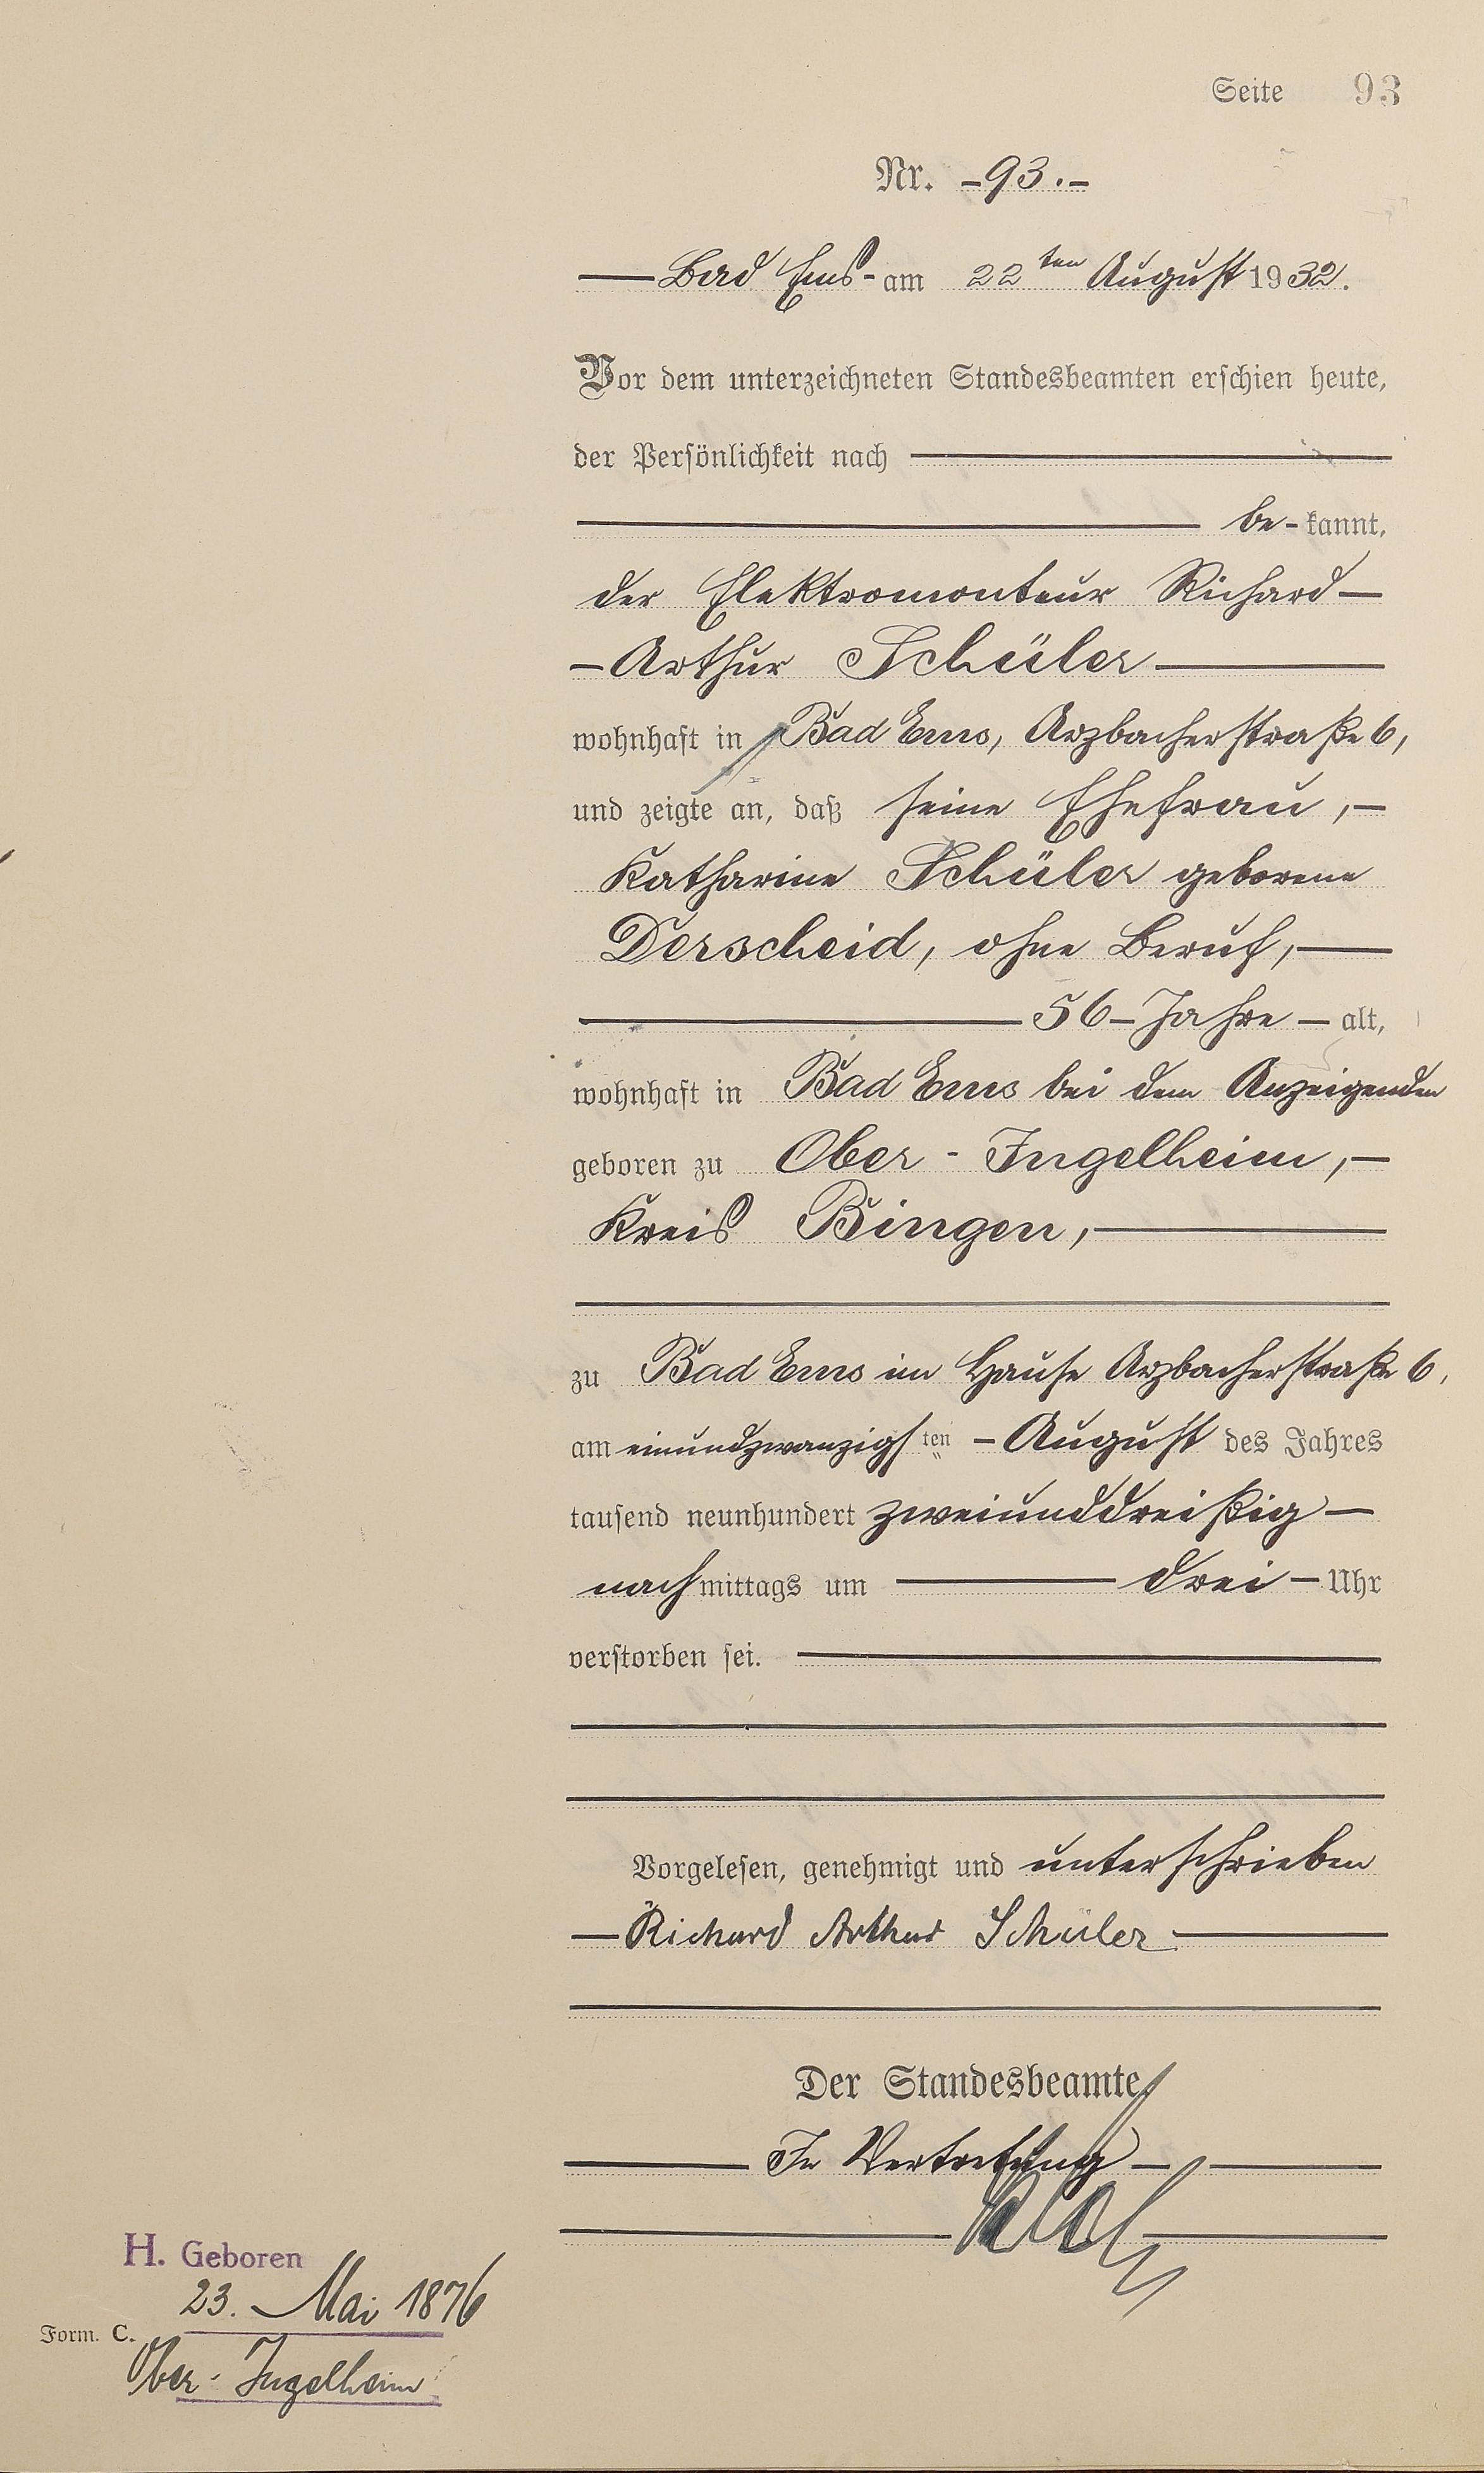 Seite 93
Nr. -93.-
Bad Ems - am 22ten August 1932.
Vor dem unterzeichneten Standesbeamten erschien heute,
der Persönlichkeit nach
be-kannt,
der Elektromonteur Richard
Arthur Schüler
wohnhaft in Bad Ems, Arzbacherstraße 6,
und zeigte an, daß seine Ehefrau,
Katharine Schüler geborene
Derscheid, ohne Beruf,
56 Jahre alt,
wohnhaft in Bad Ems bei dem Anzeigenden
geboren zu Ober-Ingelheim,
Kreis Bingen,
zu Bad Ems im Hause Arzbacherstraße 6,
am einundzwanzigsten August des Jahres
tausend neunhundert zweiunddreißig
nachmittags um drei Uhr
verstorben sei.
Vorgelesen, genehmigt und unterschrieben
Richard Arthur Schüler
Der Standesbeamte
In Vertretung
H. Geboren
23. Mai 1876
Form. C.
Ober-Ingelheim